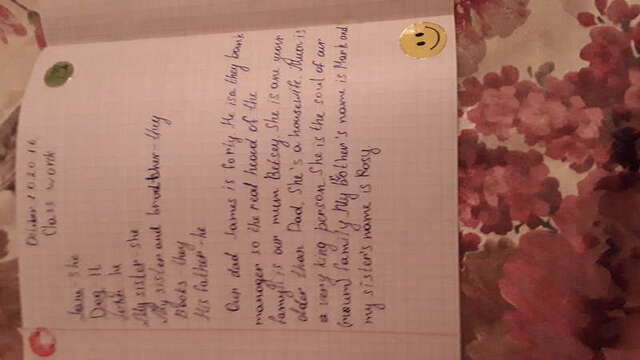 October 10.2016
Class work
Jane she
Dog It
John he
My sister - she
My sister and brother - they
Books - they
His father - he
Our dad James is forty He is a they bank
manager so the real heard of the
family is our mum Betsey She is one year
older than Dad. She's a housewife. Mum is
a very king person She is the soul of our
family My Bother's name is Mark and
my sister's name is Rosy